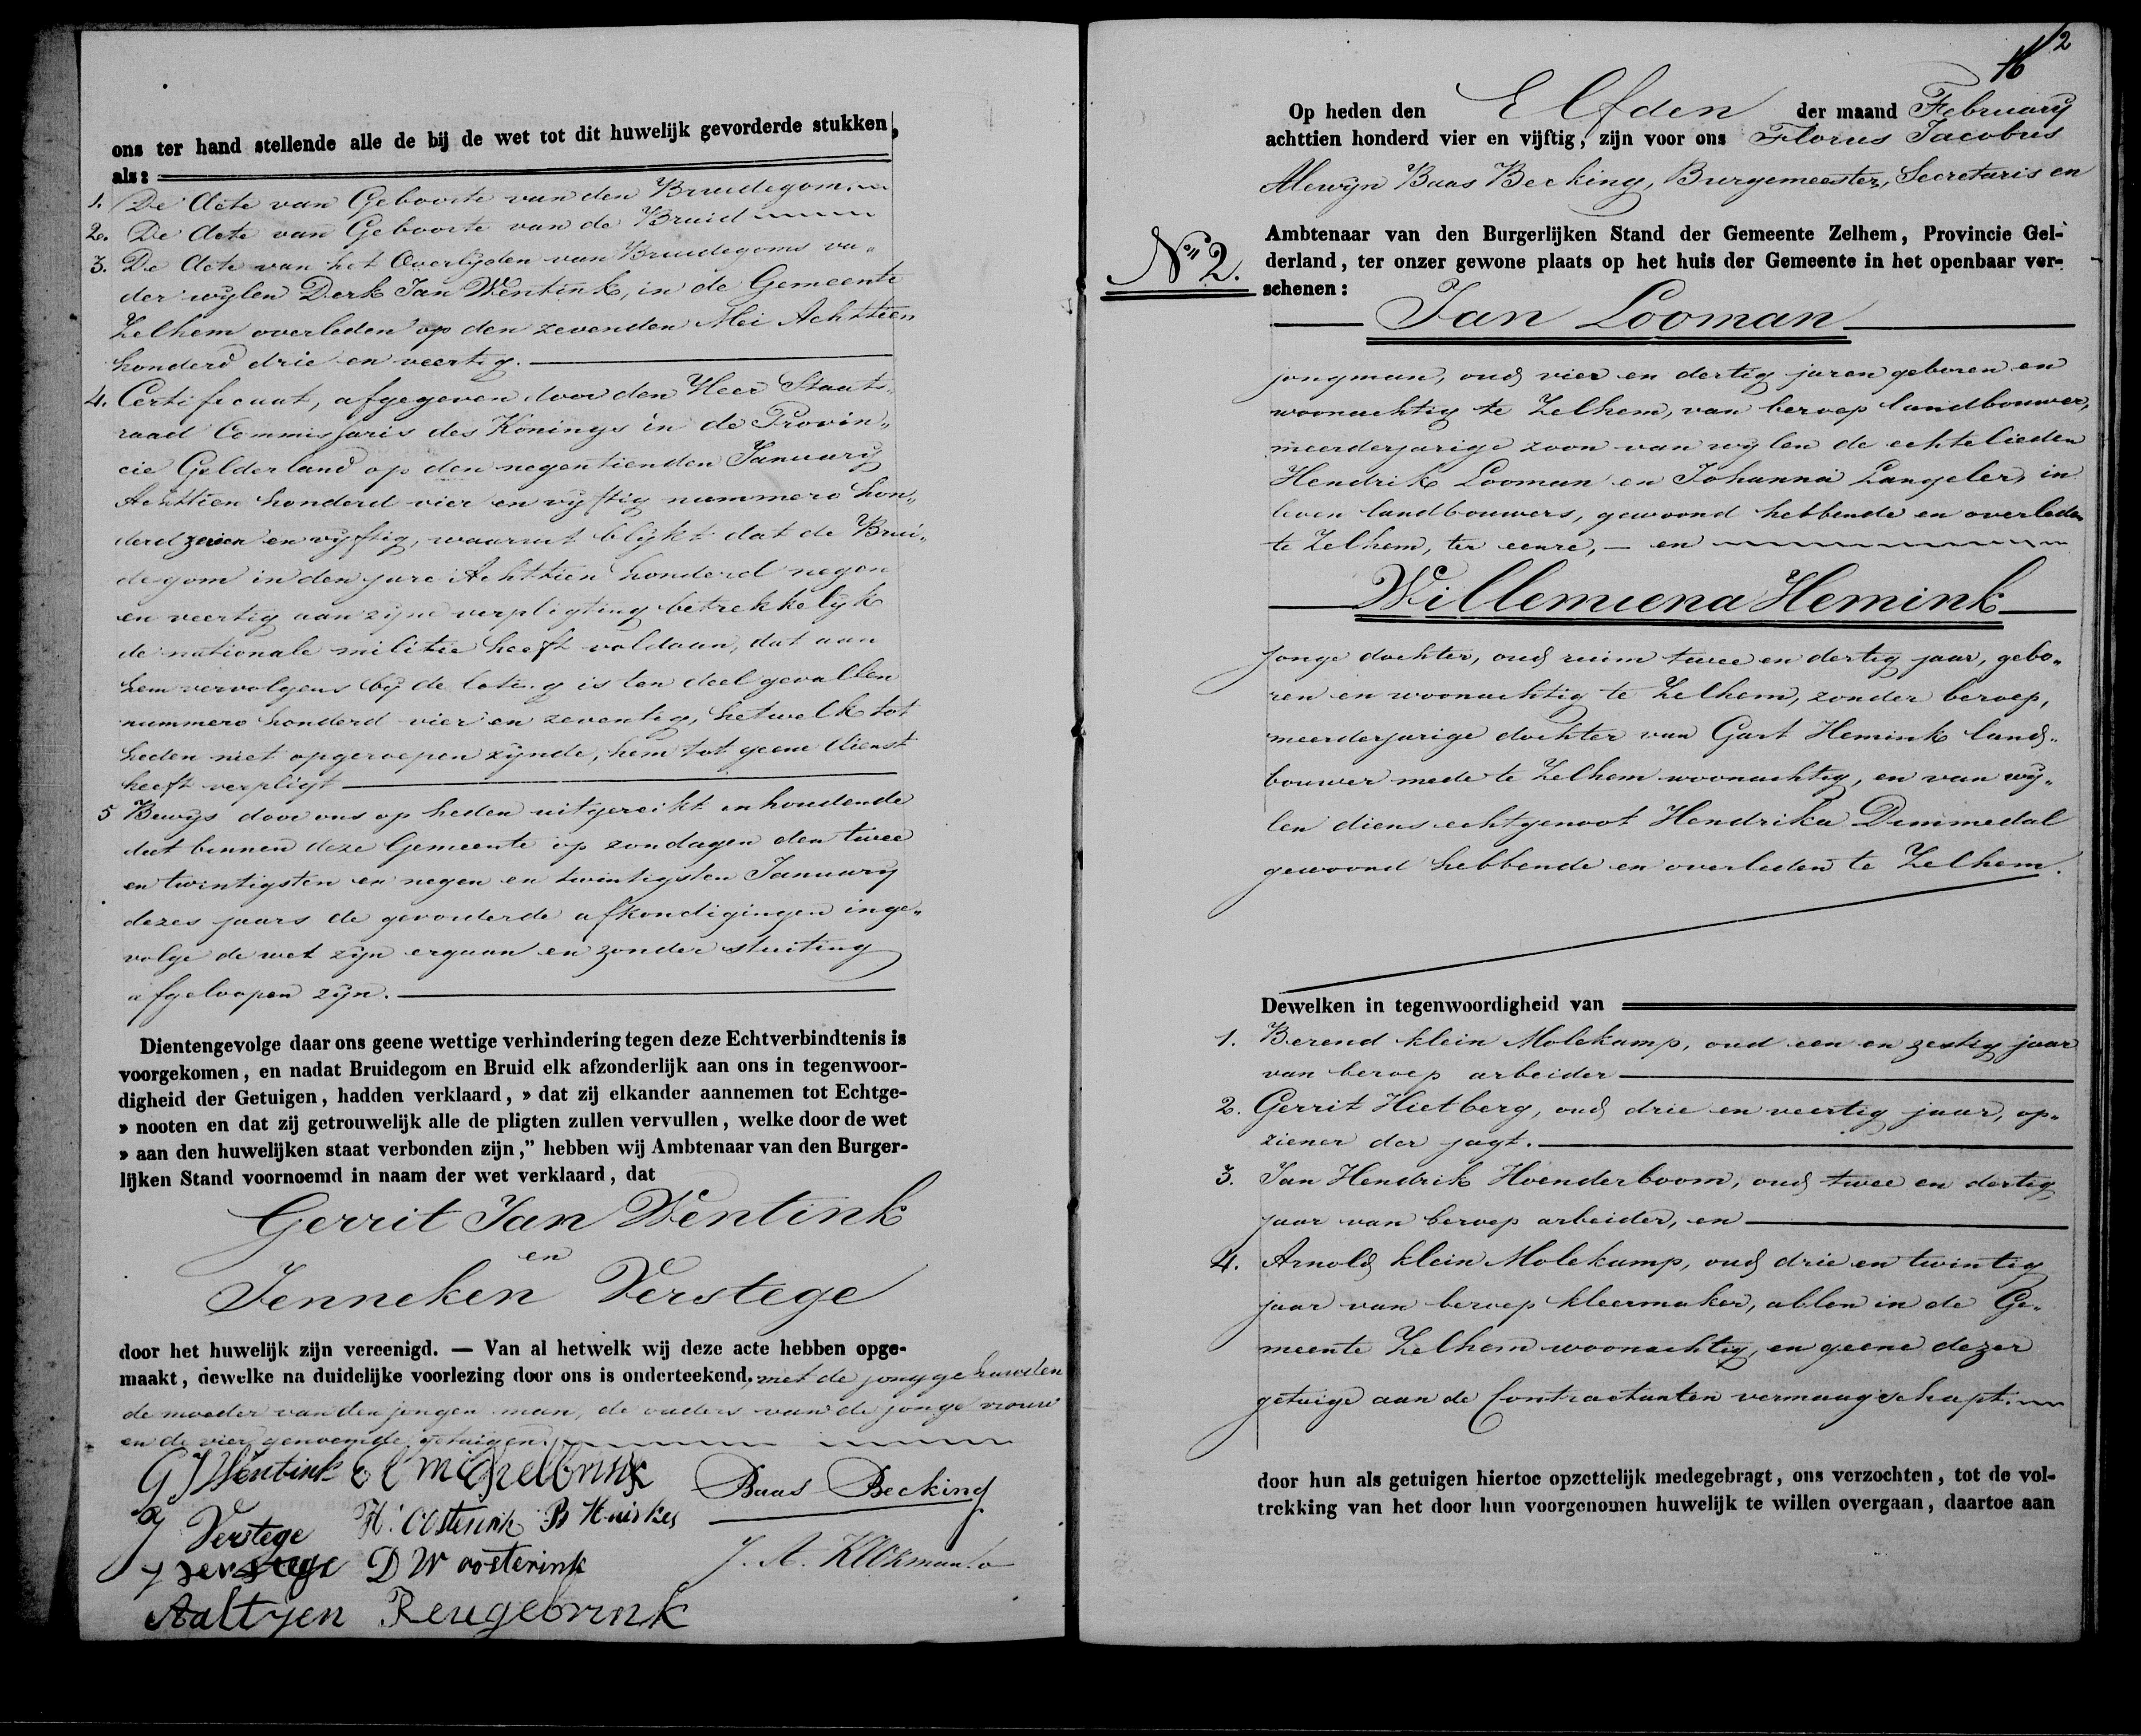 ons ter hand stellende alle de bij de wet tot dit huwelijk gevorderde stukken,
als:
1. De Acte van Geboorte van den Bruidegom.
2. De Acte van Geboorte van de Bruid
3. De Acte van het Overlijden van Bruidegoms va„
der wijlen Derk Jan Wentink, in de Gemeente
Zelhem overleden op den zevenden Mei Achttien
honderd drie en veertig.
4. Certificaat, afgegeven door den Heer Staats„
raad Commissaris des Konings in de Provin„
cie Gelderland op den negentienden January
Achttien honderd vier en vyftig nummero hon„
derd zeven en vyftig, waaruit blykt dat de Brui„
degom in den jare Achttien honderd negen
en veertig aan zyne verpligting betrekkelyk
de nationale militie heeft voldaan, dat aan
hem vervolgens by de loting is ten deel gevallen
nummero honderd vier en zeventig, hetwelk tot
heden niet opgeroepen zynde, hem tot geene dienst
heeft verpligt
5 Bewys door ons op heden uitgereikt inhoudende
dat binnen deze Gemeente op zondagen den twee
en twintigsten en negen en twintigsten January
dezes jaars de gevorderde afkondigingen inge„
volge de wet zyn ergaan en zonder stuiting
afgeloopen zyn.
Dientengevolge daar ons geene wettige verhindering tegen deze Echtverbindtenis is
voorgekomen, en nadat Bruidegom en Bruid elk afzonderlijk aan ons in tegenwoor-
digheid der Getuigen, hadden verklaard, » dat zij elkander aannemen tot Echtge-
» nooten en dat zij getrouwelijk alle de pligten zullen vervullen, welke door de wet
» aan den huwelijken staat verbonden zijn,” hebben wij Ambtenaar van den Burger-
lijken Stand voornoemd in naam der wet verklaard, dat
Gerrit Jan Wentink
en
Jenneken Verstege
door het huwelijk zijn vereenigd. — Van al hetwelk wij deze acte hebben opge-
maakt, dewelke na duidelijke voorlezing door ons is onderteekend, met de jonggehuwden
de moeder van den jongen man, de ouders van de jonge vrouw
en de vier genoemde getuigen.
G J Wentink E C Michelbrink Baas Becking
J Verstege H. Oosterink B Huiskes
J verstege D W oosterink
Aaltjen Reugebrink
16 2
Op heden den Elfden der maand February
achttien honderd vier en vijftig, zijn voor ons Florus Jacobus
Alewijn Baas Becking, Burgemeester, Secretaris en
Ambtenaar van den Burgerlijken Stand der Gemeente Zelhem, Provincie Gel-
No 2. derland, ter onzer gewone plaats op het huis der Gemeente in het openbaar ver-
schenen:
Jan Looman
jongman, oud vier en dertig jaren geboren en
woonachtig te Zelhem, van beroep landbouwer,
meerderjarige zoon van wylen de echtelieden
Hendrik Looman en Johanna Langeler, in
leven landbouwers, gewoond hebbende en overleden
te Zelhem, ter eenre, — en
Willemiena Hemink
jonge dochter, oud ruim twee en dertig jaar, gebo„
ren en woonachtig te Zelhem, zonder beroep,
meerderjarige dochter van Gart Hemink land„
bouwer mede te Zelhem woonachtig, en van wy„
len diens echtgenoot Hendrika Dimmedal
gewoond hebbende en overleden te Zelhem.
Dewelken in tegenwoordigheid van
1. Berend klein Molekamp, oud een en zestig jaar
van beroep arbeider
2. Gerrit Hietberg, oud drie en veertig jaar, op„
ziener der jagt.
3. Jan Hendrik Hoenderboom, oud twee en dertig
jaar van beroep arbeider, en
4. Arnold klein Molekamp, oud drie en twintig
jaar van beroep kleermaker, allen in de Ge„
meente Zelhem woonachtig, en geene dezer
getuige aan de Contractanten vermaagschapt.
door hun als getuigen hiertoe opzettelijk medegebragt, ons verzochten, tot de vol-
trekking van het door hun voorgenomen huwelijk te willen overgaan, daartoe aan